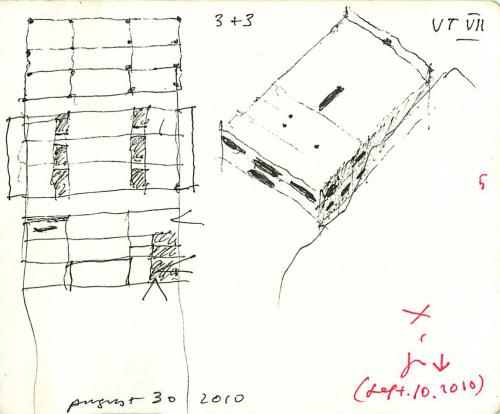 3+3
VT VII
5
x
(Sept. 10. 2010)
august 30 2010